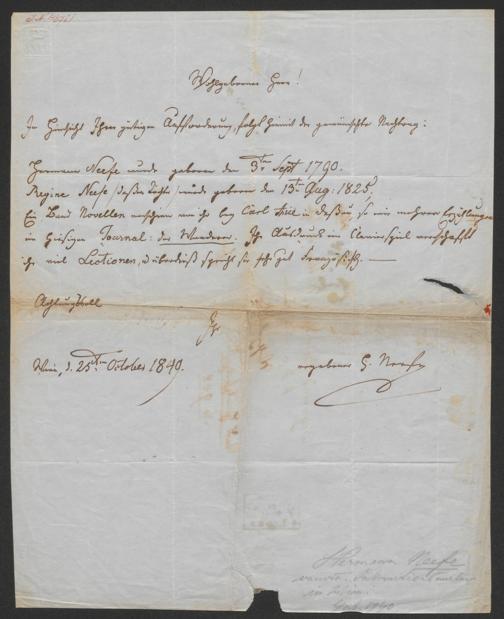 Wohlgeborner Herr!
In Hinsicht Ihrer gütigen Aufforderung, folgt hiemit der gewünschte Nachtrag:
Hermann Neefe wurde geboren den 3ten Sept 1790.
Regine Neefe /dessen Tochter/ wurde geboren den 13ten Aug: 1825.
Ein Band Novellen erschien von ihr bey Carl in Dessau, so wie mehrere Erzählungen
im hiesigen Journal: der Wanderer. Ihr Ausdruck im Clavierspiel verschafft
ihr viel Lectionen, u überdieß spricht sie sehr gut Französisch. —
Achtungsvoll
Ihr
Wien, d. 25ten October 1840.
ergebener H. Neefe
Hermann Neefe
in Wien.